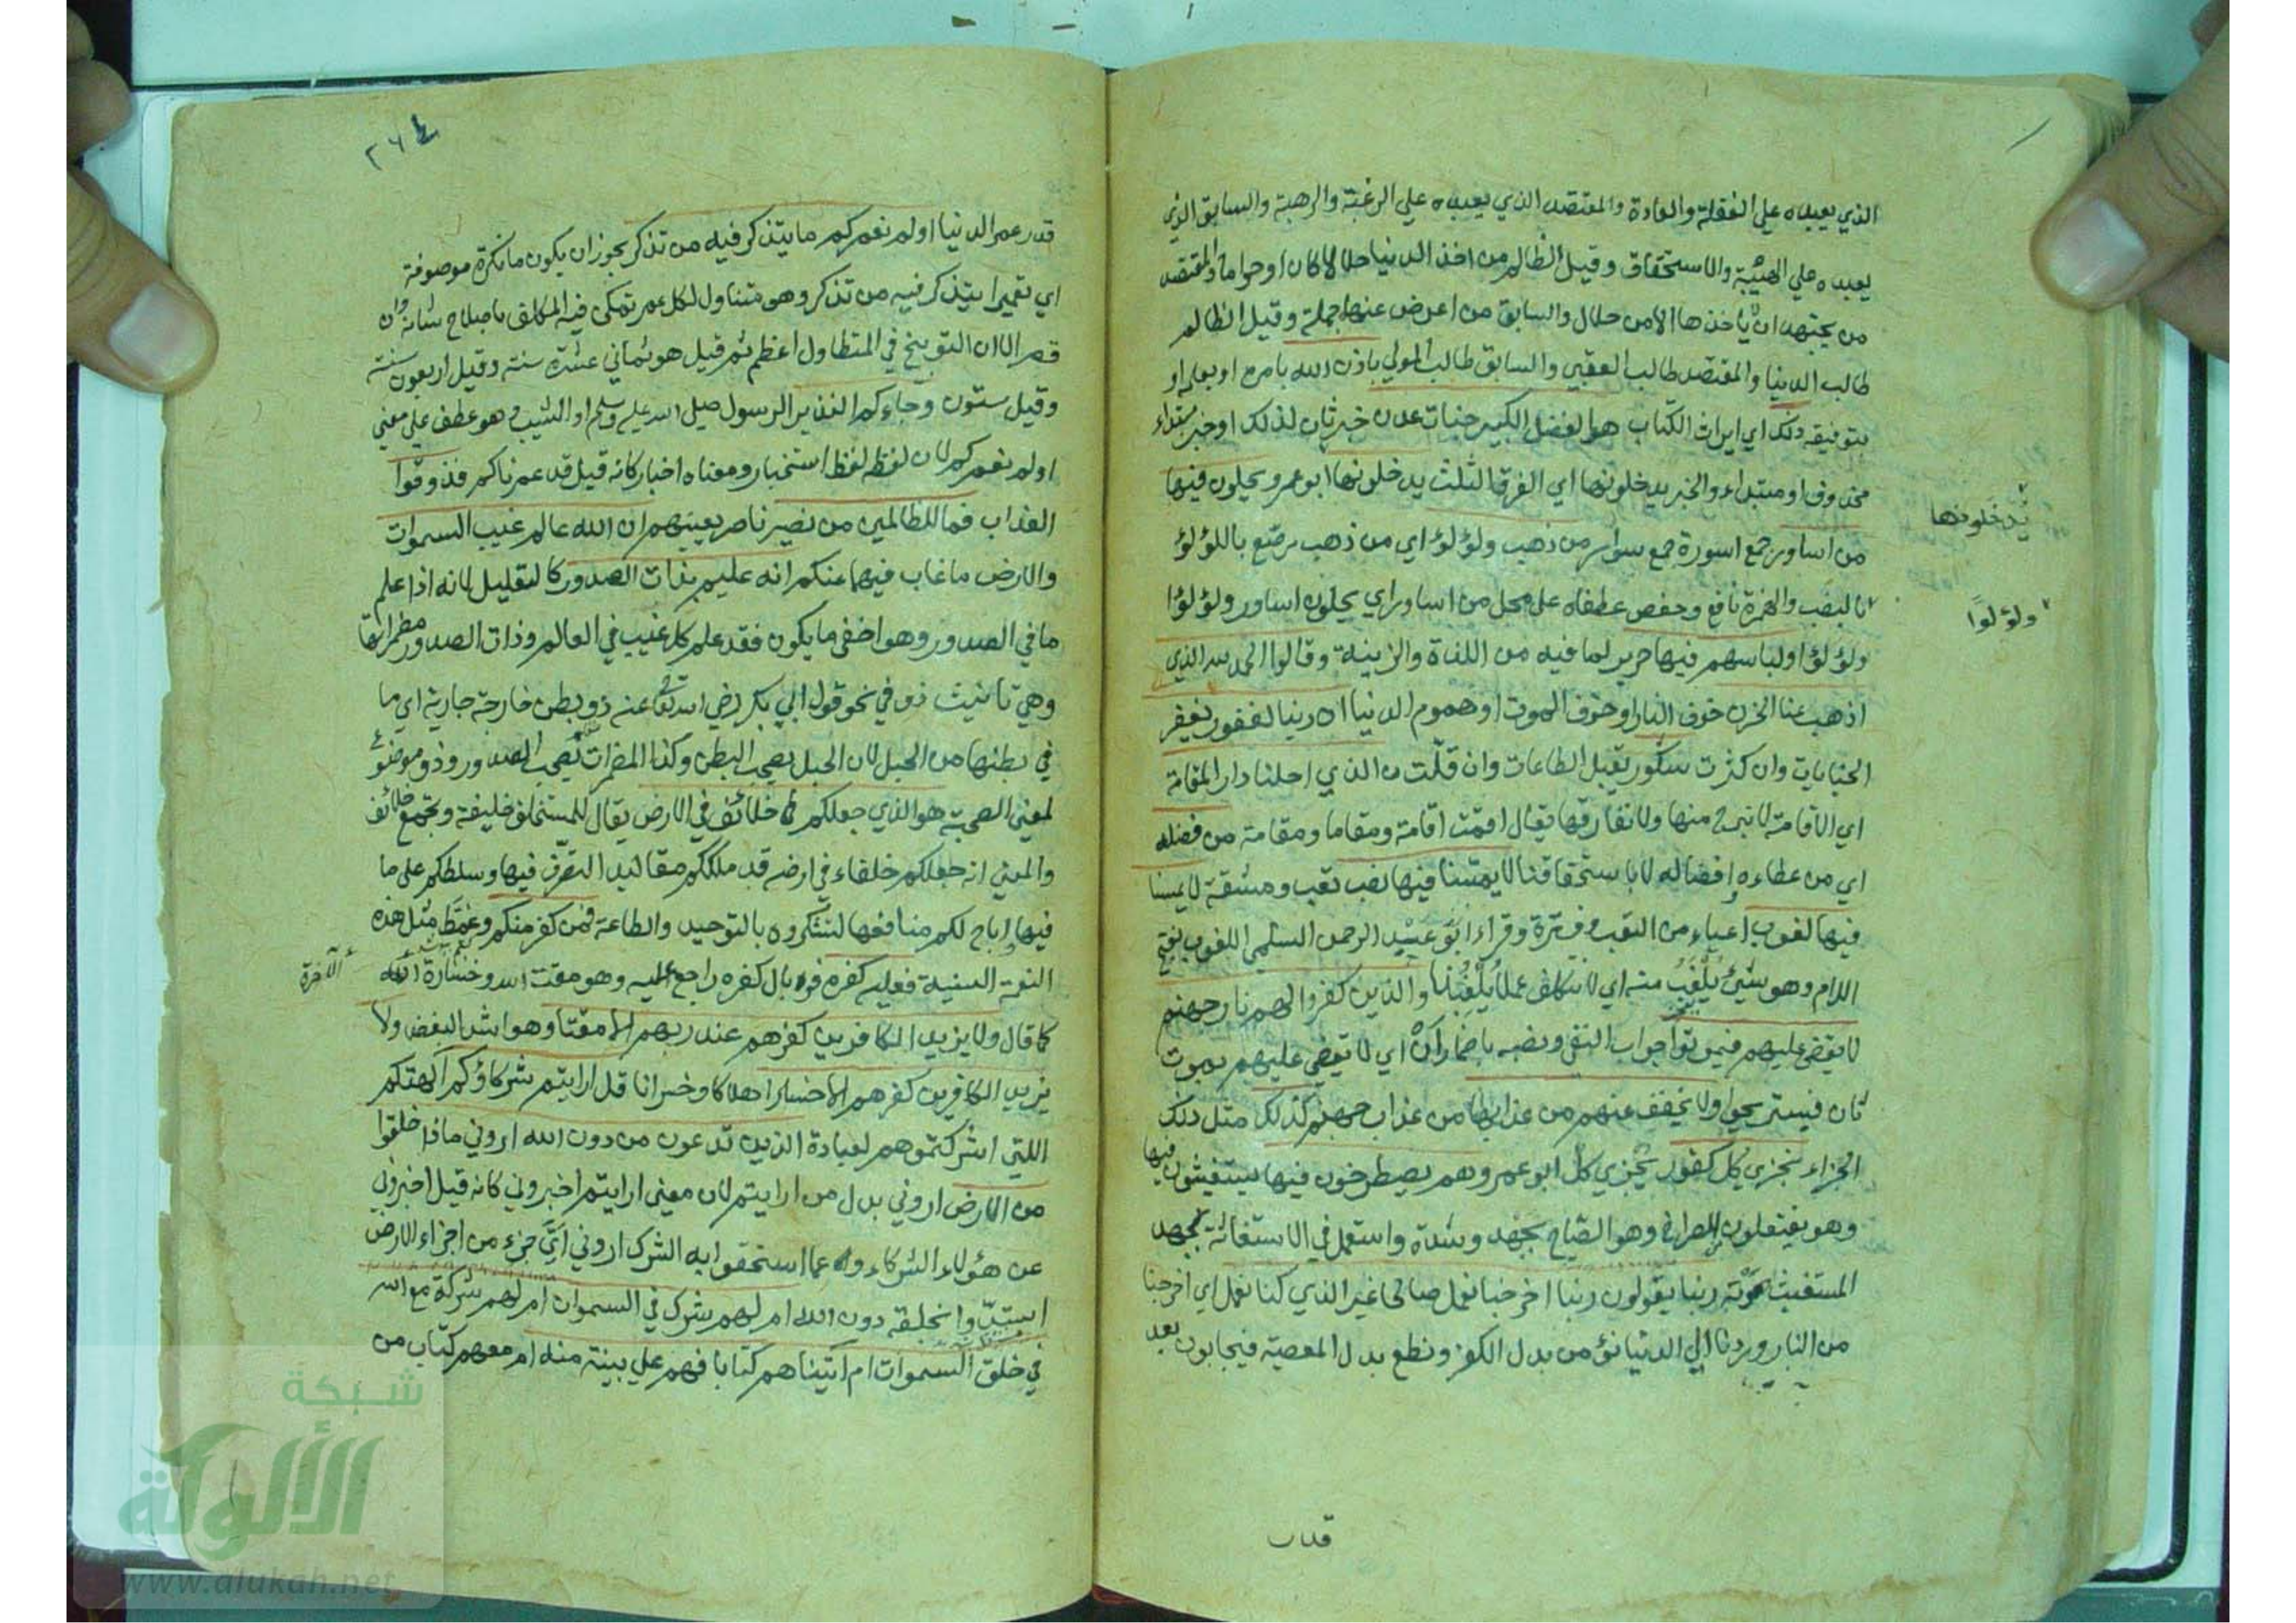 الذي يعبده علي الغفلة والعادة والمقتصد الذي يعبده علي الرغبة والرهبة والسابق الذي
يعبده علي الهيبة والاستحقاق وقيل الظالم من اخذ الدنيا حلالا كان او حراما والمقتصد
من يجتهد ان ياخذها الا من حلال والسابق من اعرض عنها جملة وقيل الظالم
طالب الدنيا والمقتصد طالب العقبي والسابق طالب المولي باذن الله بامره او بعلمه او
بتوفيقه ذلك اي ايراث الكتاب هو الفضل الكبير جنات عدن خبر ثان لذلك او خبر مبتداء
محذوف او مبتداء والخبر يدخلونها اي الفرق الثلث يدخلونها ابو عمرو يحلون فيها
يُدخَلونها
من اساور جمع اسورة جمع سوار من ذهب ولؤلؤ اي من ذهب مرصع باللؤلؤ
بالنصب والهمزة نافع وحفص عطفاه علي محل من اساور اي يحلون اساور ولؤلؤا
ولؤلوًا
ولؤلؤا ولباسهم فيها حرير لما فيه من اللذة والزينة وقالوا الحمد لله الذي
اذهب عنا الحزن خوف النار او خوف الموت او هموم الدنيا ان ربنا لغفور يغفر
الجنايات وان كثرت شكور يقبل الطاعات وان قلّت الذي احلنا دار المقامة
اي الاقامة لا نبرح منها ولا نفارقها يقال اقمت اقامة ومقاما ومقامة من فضله
اي من عطاءه وافضاله لا باستحقاقنا لا يمسّنا فيها نصب تعب ومشقة لا يمسنا
فيها لغوب اعياء من التعب وفترة وقراء ابو عبد الرحمن السلمي اللغوب بفتح
اللام وهو شئ يُلْغَبُ منه اي لا نتكلف عملا يُلْغِبُنا والذين كفروا لهم نار جهنم
لا يقضي عليهم فيموتوا جواب النفي ونصبه باضمار اَنْ اي لا يقضي عليهم بموت
ثان فيستريحوا ولا يخفف عنهم من عذابها من عذاب جهنم كذلك مثل ذلك
الجزاء نجزي كل كفور يُجزي كلُّ ابو عمرو وهم يصطرخون فيها يستغيثون فيها
وهو يفتعلون من الصراخ وهو الصّياح بجهد وشدة واستعمل في الاستغاثة لجهد
المستغيث صوته ربنا يقولون ربنا اخرجنا نعمل صالحا غير الذي كنا نعمل اي اخرجنا
من النار وردنا الي الدنيا نؤمن بدل الكفر ونطع بدل المعصية فيجابون بعد
قدر
٢٦٤
قدر عمر الدنيا اولم نعمركم ما يتذكر فيه من تذكر يجوز ان يكون ما نكرة موصوفة
اي تعميرا يتذكر فيه من تذكر وهو متناول لكل عمر تمكن فيه المكلف باصلاح شانه وان
قصر الا ان التوبيخ في المتطاول اعظم ثم قيل هو ثماني عشرة سنة وقيل اربعون سنة
وقيل ستون وجاءكم النذير الرسول صلي الله عليه وسلم او الشيب وهو عطف علي معني
اولم نعمركم لان لفظه لفظ استخبار ومعناه اخبار كانه قيل قد عمرناكم فذوقوا
العذاب فما للظالمين من نصير ناصر يعينهم ان الله عالم غيب السموات
والارض ما غاب فيهما عنكم انه عليم بذات الصدور كالتعليل لانه اذا علم
ما في الصدور وهو اخفي ما يكون فقد علم كل غيب في العالم وذات الصدور مضمراتها
وهي تانيث ذو في نحو قول ابي بكر رضي الله تعالي عنه ذو بطن خارجة جارية اي ما
في بطنها من الحبل لان الحبل يصحب البطن وكذا المضمرات تصحب الصدور وذو موضوع
لمعني الصحبة هو الذي جعلكم خلائف في الارض يقال للمستخلف خليفة وتجمع خلائف
والمعني انه جعلكم خلفاء في ارضه قد ملككم مقاليد التصرف فيها وسلطكم علي ما
فيها واباح لكم منافعها لتشكروه بالتوحيد والطاعة فمن كفر منكم وغمَط مثل هذه
النعمة السنية فعليه كفره فوبال كفره راجع عليه وهو مقت الله وخسارة
الآخرة
كما قال ولا يزيد الكافرين كفرهم عند ربهم الا مقتا وهو اشد البغض ولا
يزيد الكافرين كفرهم الا خسارا هلاكا وخسرانا قل ارايتم شركاؤكم آلهتكم
اللتي اشركتموهم لعبادة الذين تدعون من دون الله اروني ماذا خلقوا
من الارض اروني بدل من ارايتم لان معني ارايتم اخبروني كانه قيل اخبروني
عن هؤلاء الشركاء وعما استحقوا به الشرك اروني ايَّ جزء من اجزاء الارض
استبدّوا بخلقه دون الله ام لهم شرك في السموات ام لهم شركة مع الله
في خلق السموات ام اتيناهم كتابا فهم علي بينة منه ام معهم كتاب من
شبكة
الألوكة
www.alukah.net